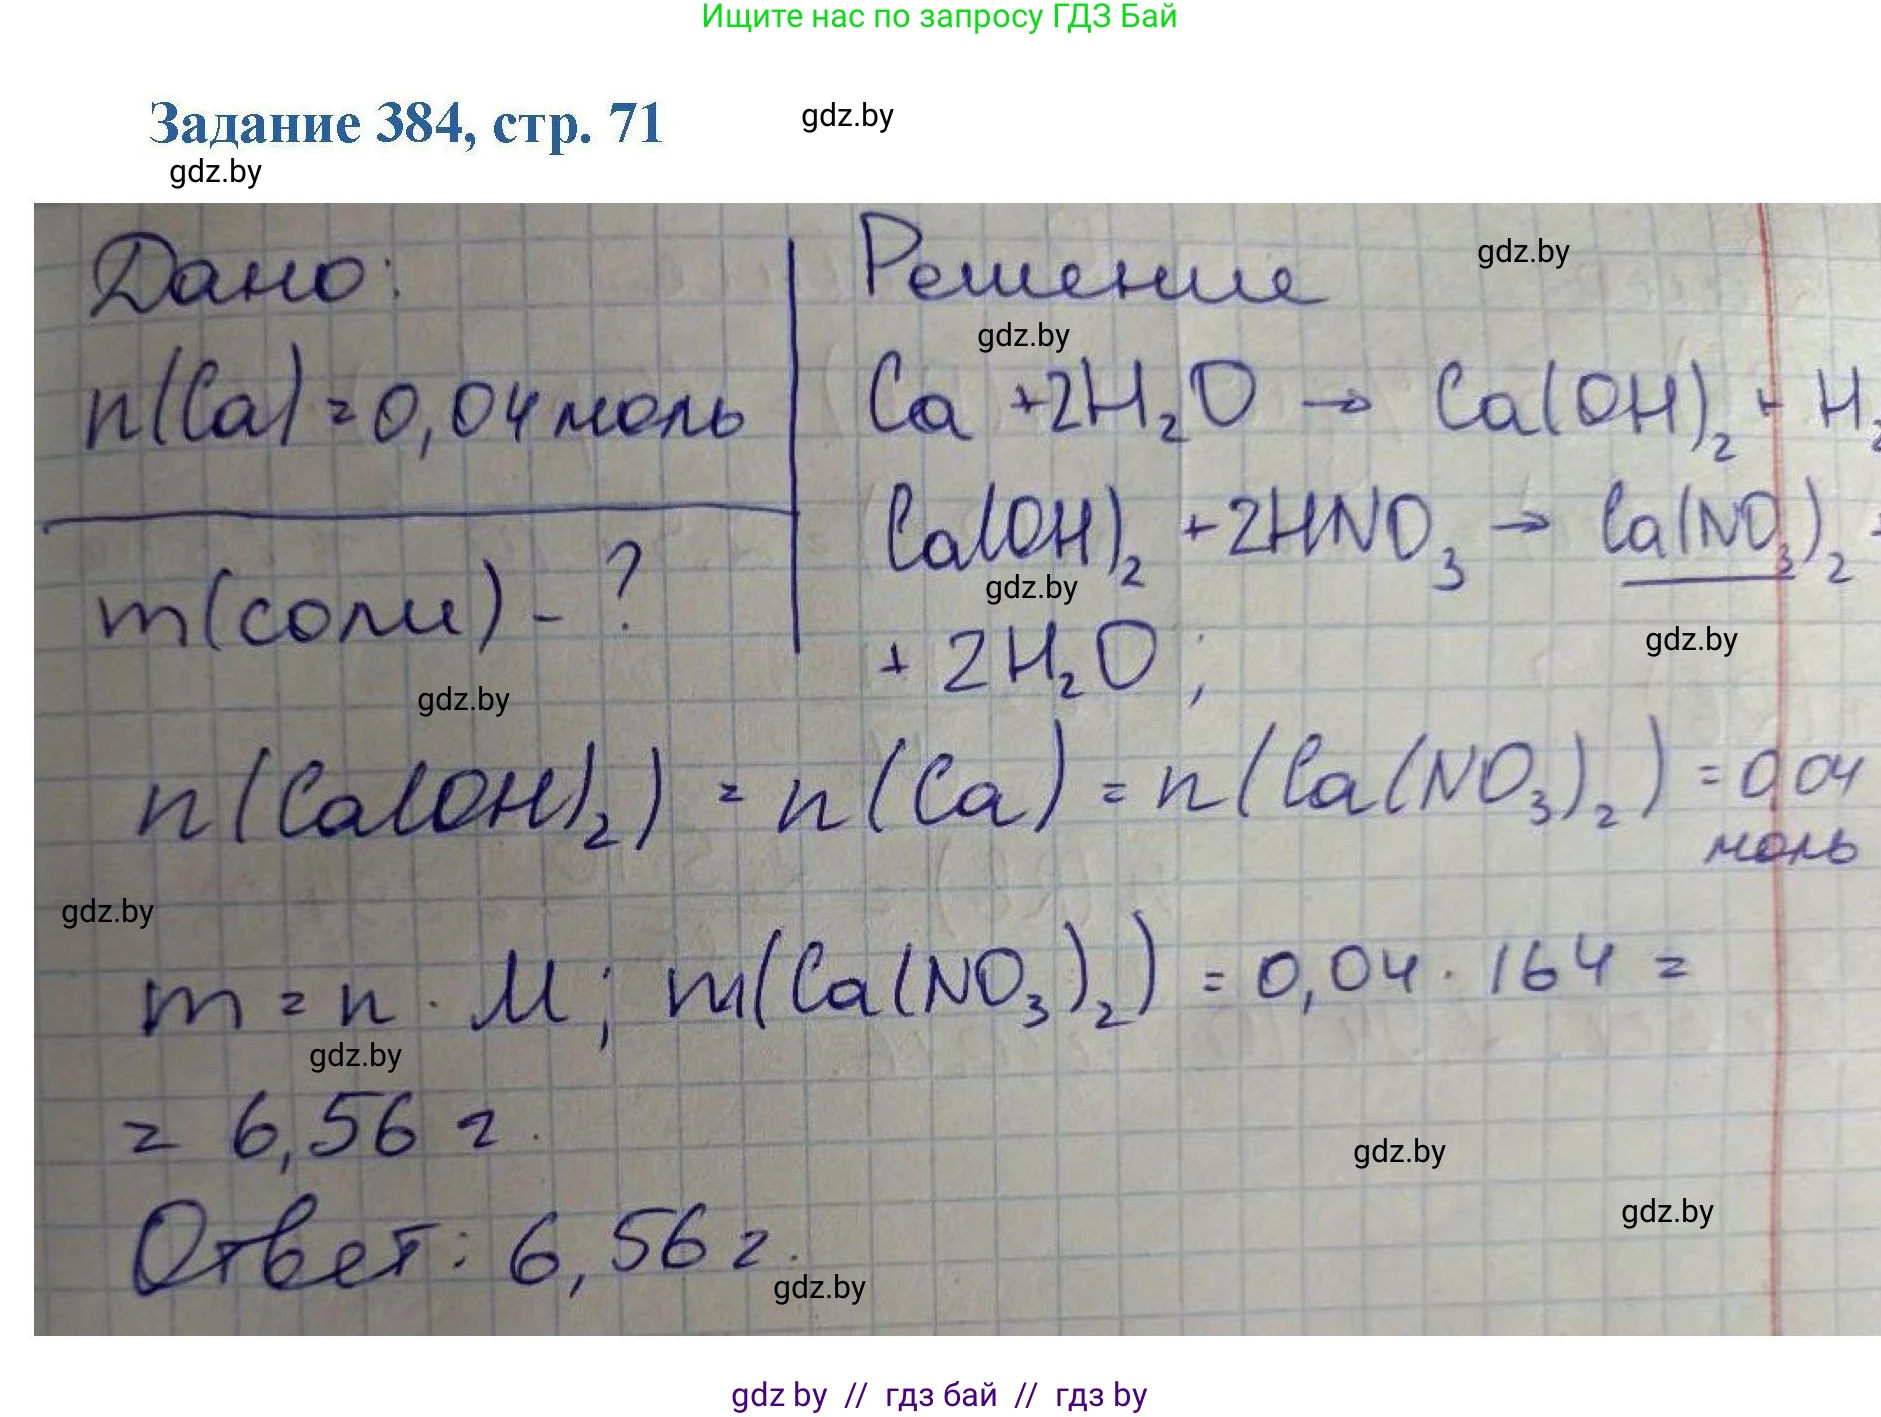 Ищите нас по запросу ГДЗ Бай
Задание 384, стр. 71
gdz.by
gdz.by
Дано:
n(Ca) = 0,04 моль
m(соли) - ?
Решение
gdz.by
gdz.by
Ca + 2H₂O → Ca(OH)₂ + H₂
Ca(OH)₂ + 2HNO₃ → Ca(NO₃)₂ +
gdz.by
+ 2H₂O;
gdz.by
gdz.by
n(Ca(OH)₂) = n(Ca) = n(Ca(NO₃)₂) = 0,04
моль
gdz.by
m = n · M; m(Ca(NO₃)₂) = 0,04 · 164 =
gdz.by
= 6,56 г.
gdz.by
gdz.by
Ответ: 6,56 г.
gdz.by
gdz by // гдз бай // гдз by